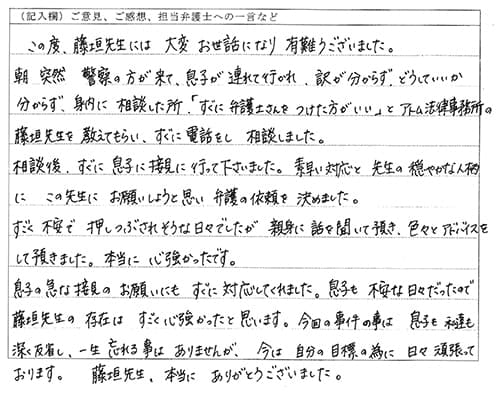 （記入欄）ご意見、ご感想、担当弁護士への一言など
この度、藤垣先生には 大変 お世話になり 有難うございました。
朝 突然 警察の方が来て、息子が 連れて行かれ、訳が分からず、どうしていいか
分からず、身内に 相談した所、「すぐに弁護士さんを つけた方がいい」と アトム法律事務所の
藤垣先生を 教えてもらい、すぐに 電話をし 相談しました。
相談後、すぐに 息子に接見に 行って下さいました。 素早い対応と 先生の 穏やかな人柄
に この先生に お願いしようと思い 弁護の依頼を 決めました。
すごく 不安で 押しつぶされそうな日々でしたが 親身に 話を聞いて頂き、色々と アドバイスを
して頂きました。本当に 心強かったです。
息子の急な接見の お願いにも すぐに 対応してくれました。息子も 不安な日々だったので
藤垣先生の 存在は すごく心強かったと思います。今回の事件の事は 息子も 私達も
深く反省し、一生 忘れる事は ありませんが、今は 自分の 目標の為に 日々 頑張って
おります。 藤垣先生、本当に ありがとうございました。